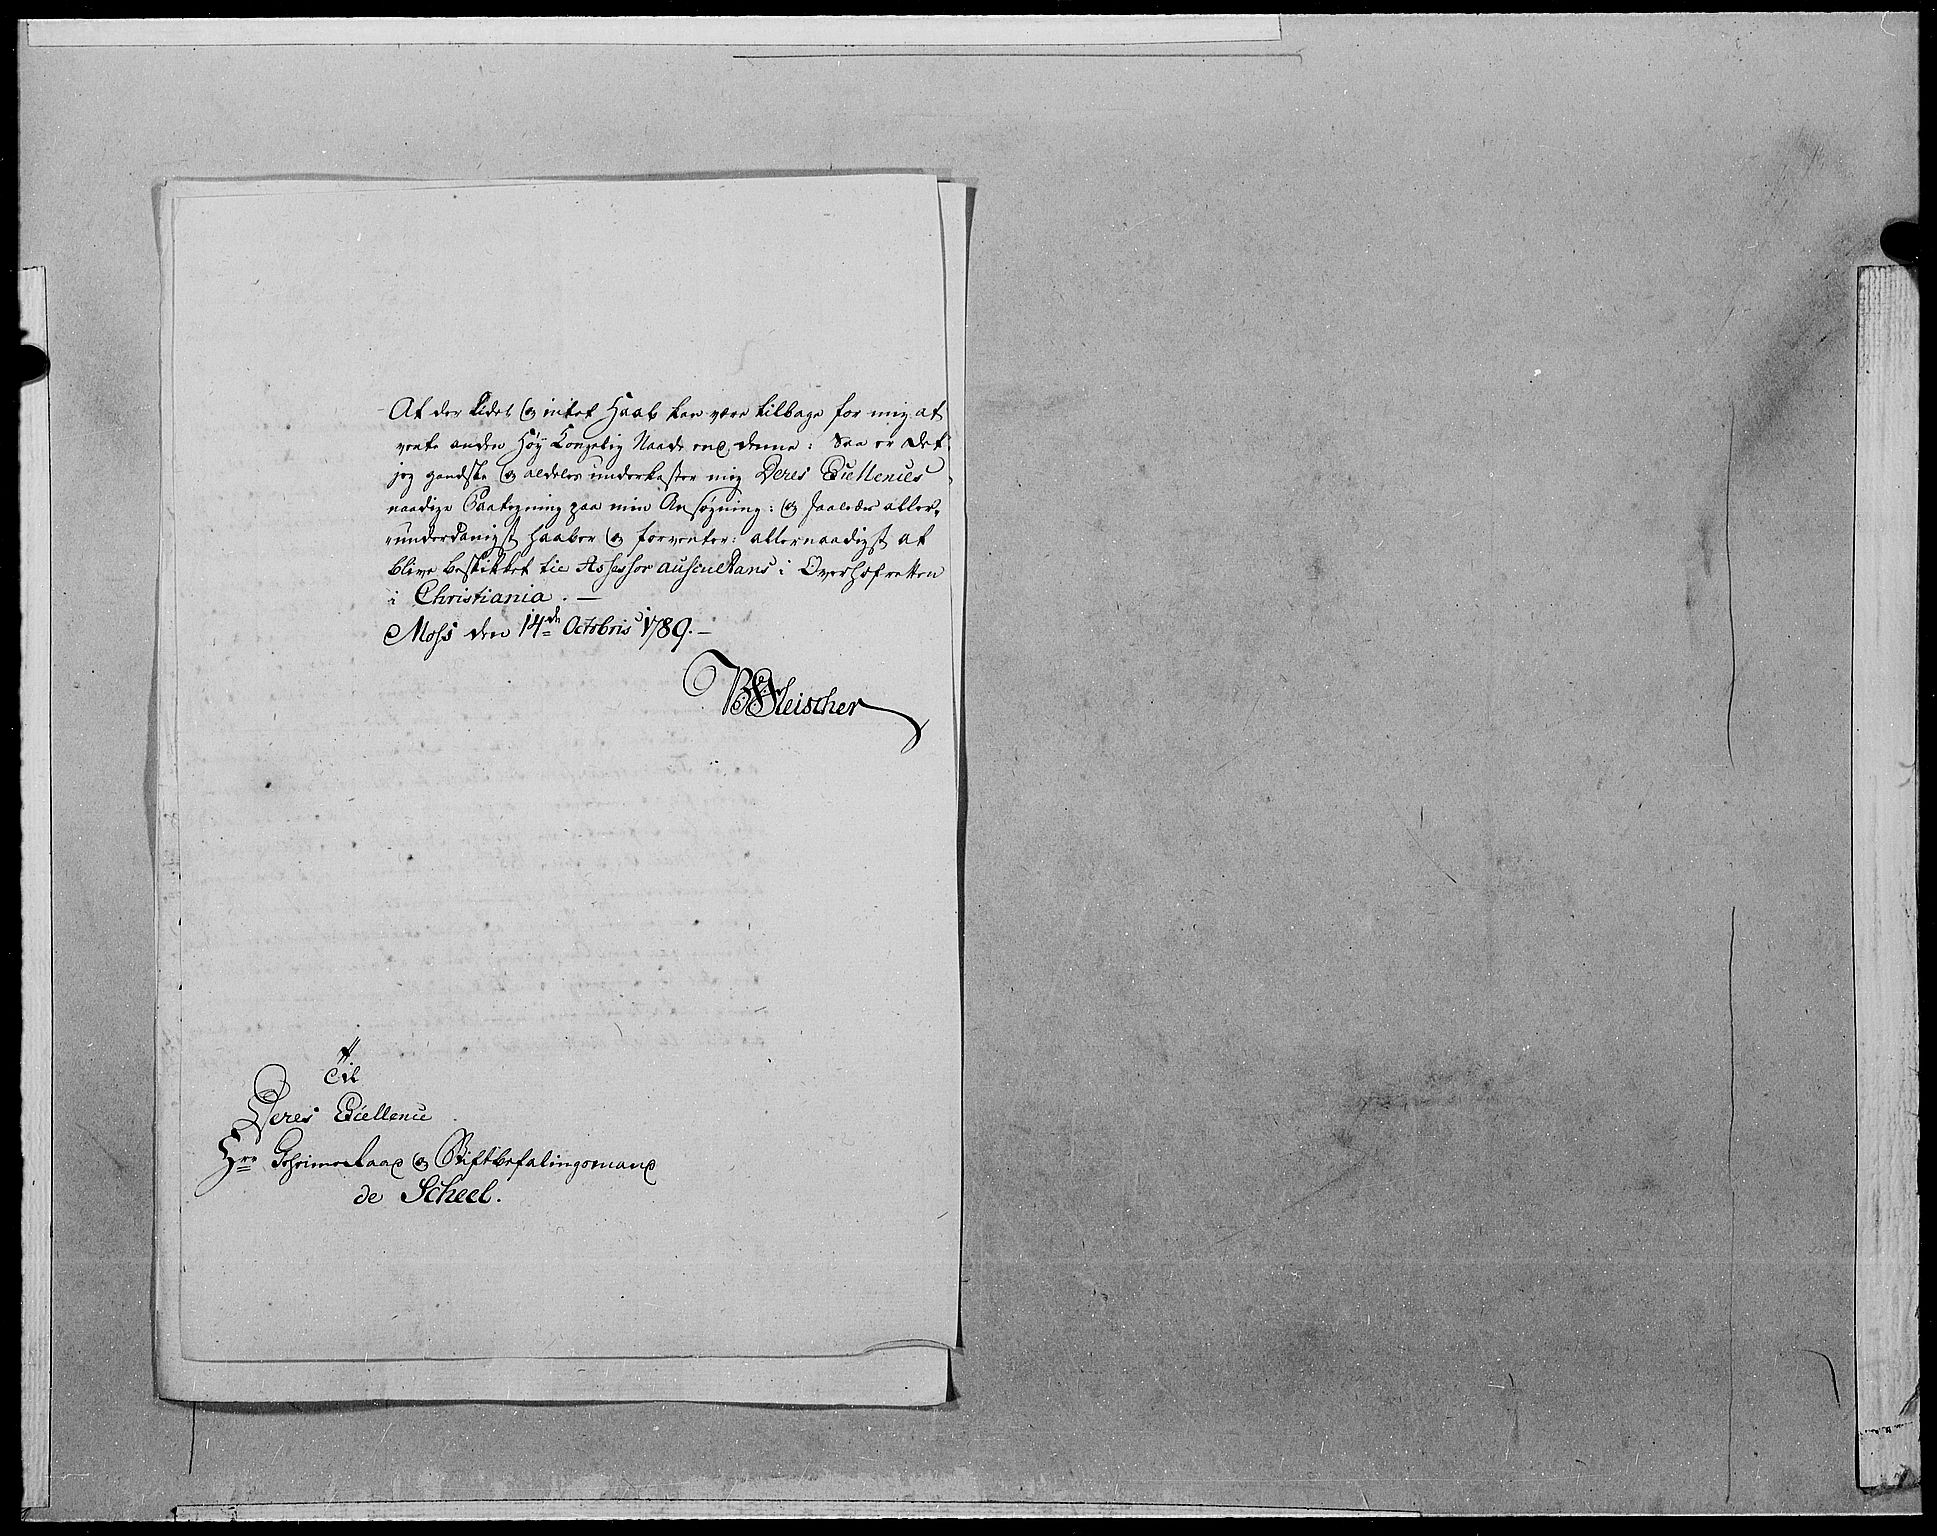 At der lidet og intet Haab kan være tilbage for mig at
vente anden Høy Kongelig Naade end denne: Saa er det
jeg gandske og aldeles underkaster mig Deres Excellences
naadige Paategning paa min Ansøgning: og saaledes aller-
underdanigst haaber og forventer: allernaadigst at
blive beskikket til Assessor auscultans i Overhofretten
i Christiania. —
Moss den 14de Octobris 1789. —
Fleischer
Til
Deres Excellence
Hrr Geheimeraad og Stiftbefalingsmand
de Scheel.